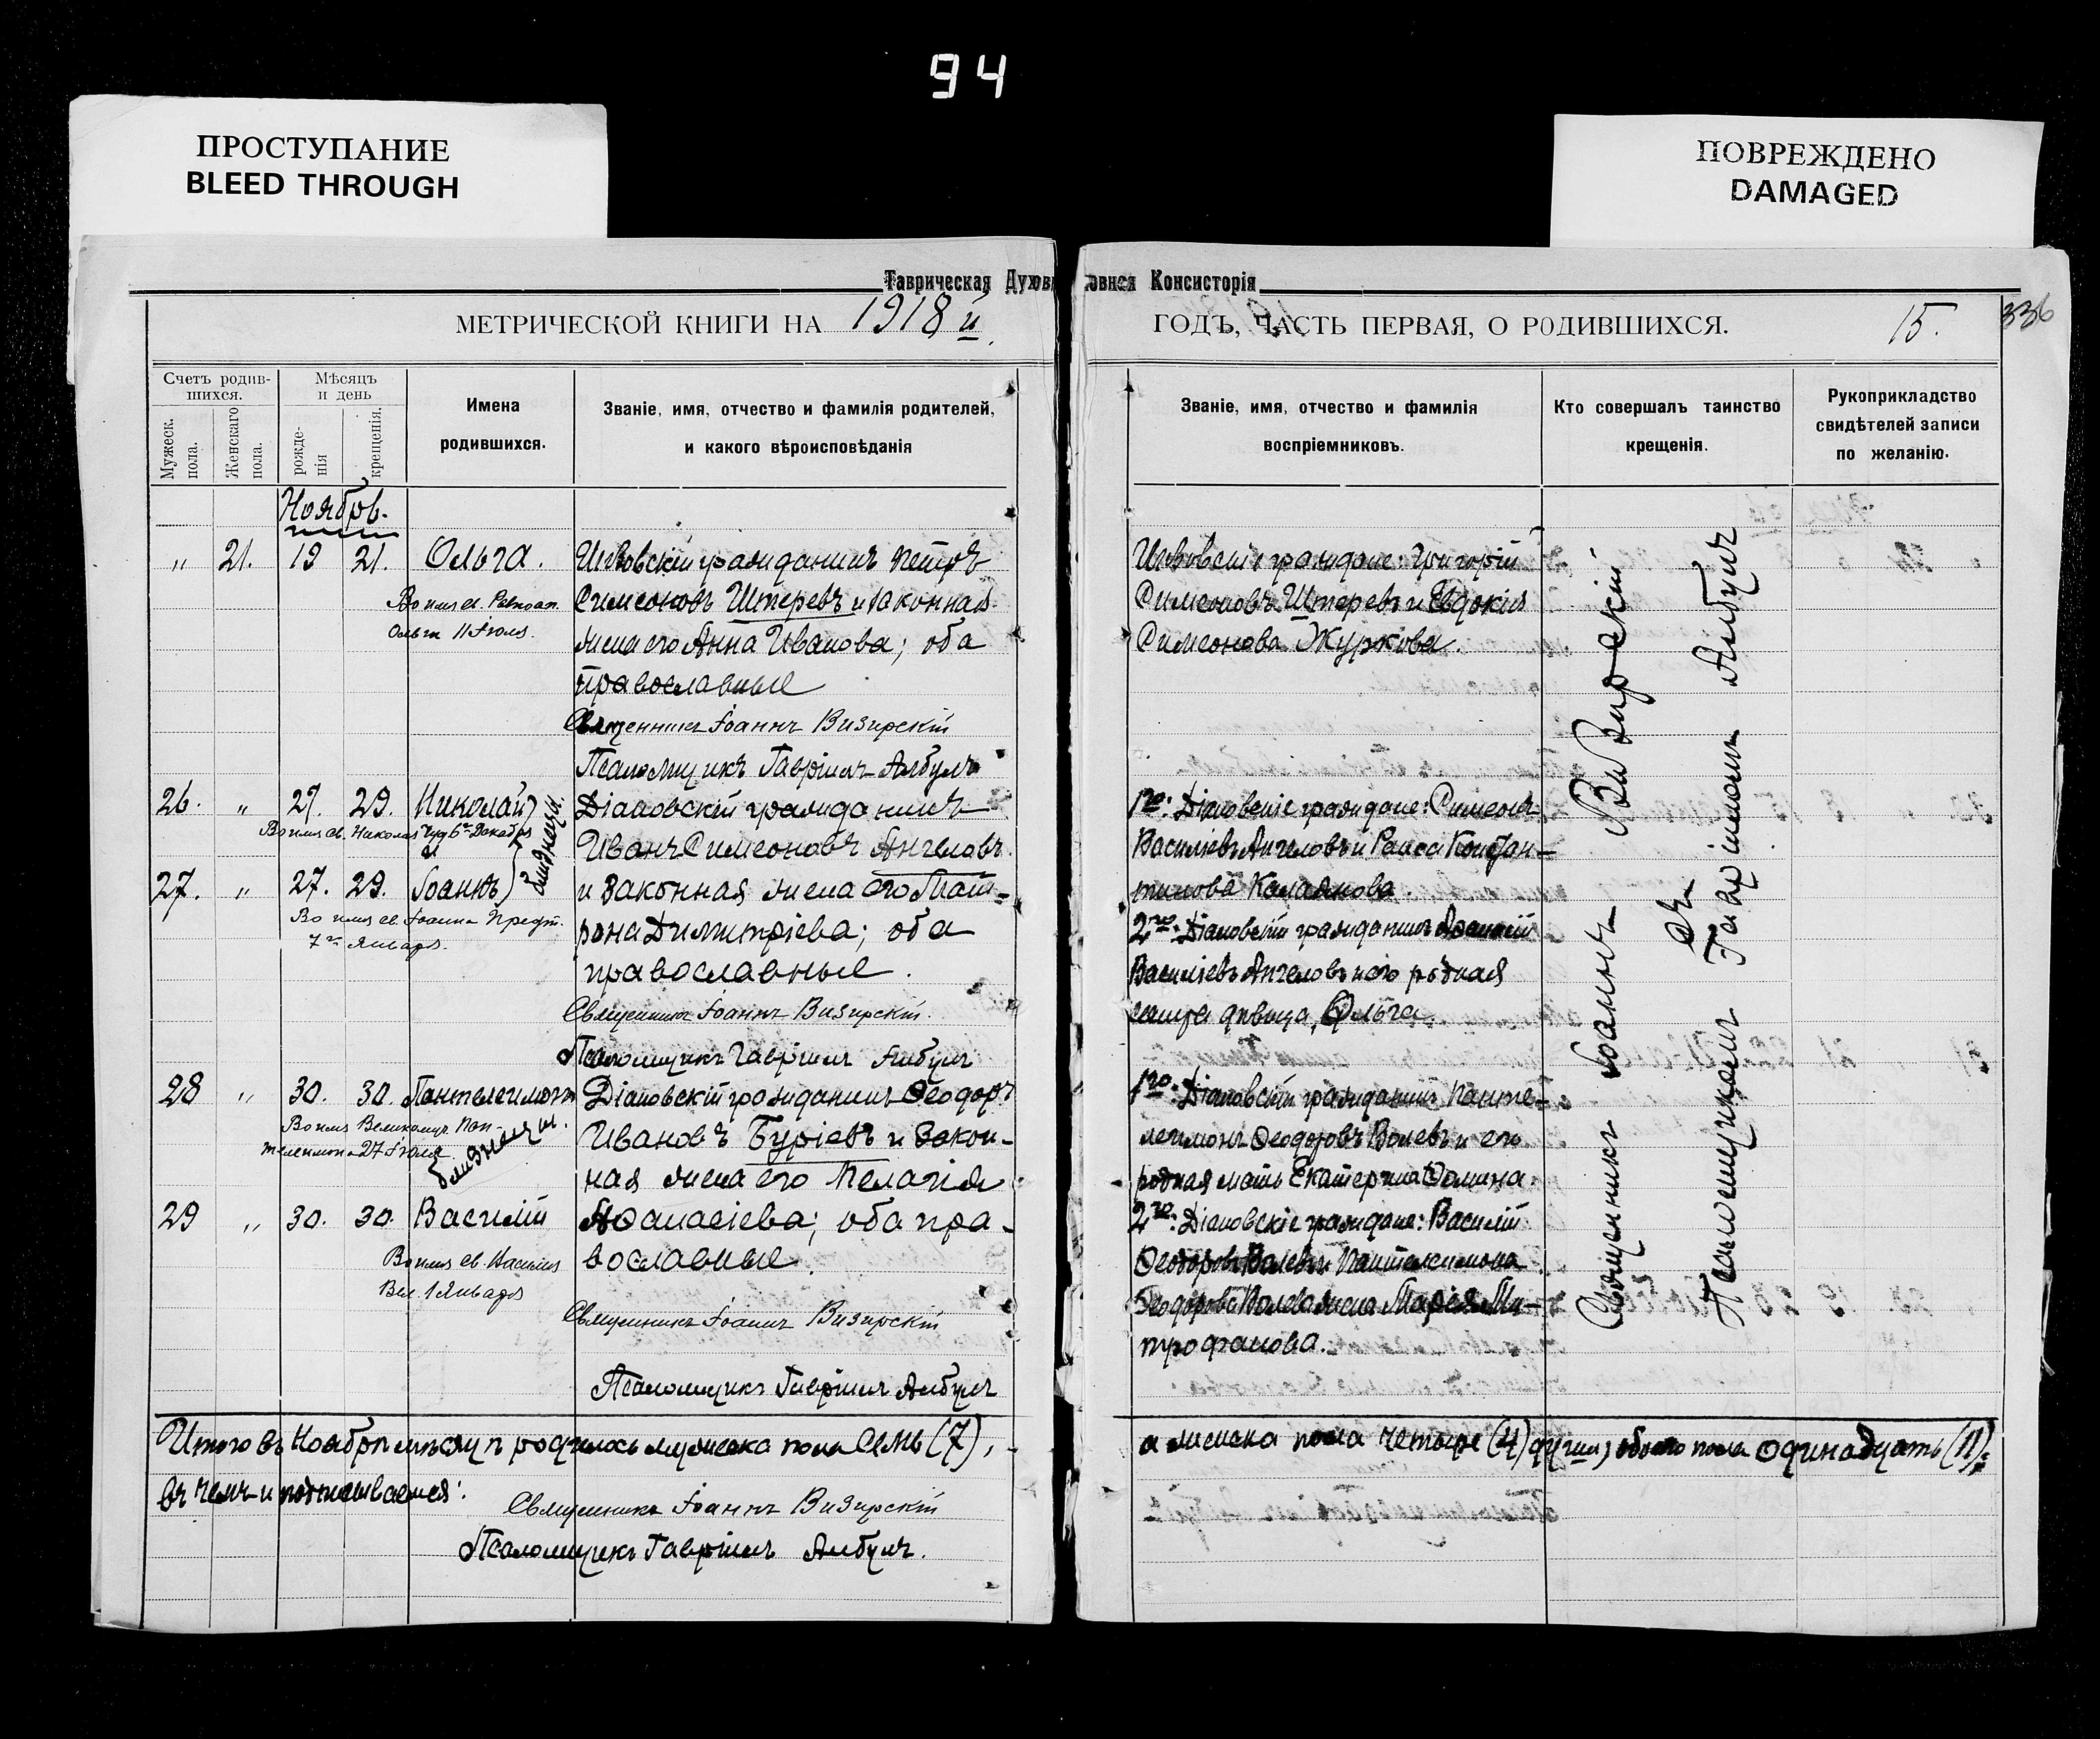 94
ПРОСТУПАНИЕ
BLEED THROUGH
ПОВРЕЖДЕНО
DAMAGED
Таврическая Духовная Консисторія
МЕТРИЧЕСКОЙ КНИГИ НА 1918 й
ГОДЪ, ЧАСТЬ ПЕРВАЯ, О РОДИВШИХСЯ.
15.
336
Счетъ родив-
шихся.
Мужеск.
пола.
Женскаго
пола.
Мѣсяцъ
и день
рожде-
нія
крещенія.
Имена
родившихся.
Званіе, имя, отчество и фамилія родителей,
и какого вѣроисповѣданія
Званіе, имя, отчество и фамилія
воспріемниковъ.
Кто совершалъ таинство
крещенія.
Рукоприкладство
свидѣтелей записи
по желанію.
Ноябрь.
" 21. 19 21. Ольга.
Во имя св. Равноап.
Ольги 11 Іюля.
гражданинъ Петръ
Симеоновъ Штеревъ и законная
жена его Анна Иванова; оба
православные
Священникъ Іоаннъ Визирскій
Псаломщикъ Гавріилъ Албулъ
граждане: Григорій
Симеоновъ Штеревъ и Евдокія
Симеонова Журкова.
26. " 27. 29. Николай
Во имя св. Николая Чуд 6го Декабря
и
27. " 27. 29. Іоаннъ
близнецы.
Во имя св. Іоанна Предт.
7го Января.
Діановскій гражданинъ
Иванъ Симеоновъ Ангеловъ
и законная жена его Мат-
рона Димитріева; оба
православные.
Священникъ Іоаннъ Визирскій.
Псаломщикъ Гавріилъ Албулъ
1го: Діановскіе граждане: Симеонъ
Васильевъ Ангеловъ и Раиса Констан-
тинова Калаянова.
2го: Діановскій гражданинъ
Васильевъ Ангеловъ и его родная
сестра дѣвица, Ольга.
28 " 30. 30. Пантелеимонъ
Во имя Великомуч. Пан-
телеимона 27 Іюля
близнецы.
29 " 30. 30. Василій
Во имя св. Василія
Вел. 1 Января
Діановскій гражданинъ Ѳеодоръ
Ивановъ Буріевъ и закон-
ная жена его Пелагія
Аѳанасіева; оба пра-
вославные.
Священникъ Іоаннъ Визирскій
Псаломщикъ Гавріилъ Албулъ
1го: Діановскій гражданинъ Панте-
леимонъ Ѳеодоровъ Волевъ и его
родная мать Екатерина Ѳомина.
2го: Діановскіе граждане: Василій
Ѳеодоровъ Волевъ и Пантелеимона
Ѳеодорова Волева жена Марія Ми-
трофанова.
Священникъ Іоаннъ Визирскій
съ
Псаломщикомъ Гавріиломъ Албулъ
Итого въ Ноябрѣ мѣсяцѣ родилось мужеска пола семь (7),
а женска пола четыре (4) души, обоего пола одинадцать (11);
въ чемъ и подписываемся:
Священникъ Іоаннъ Визирскій
Псаломщикъ Гавріилъ Албулъ.